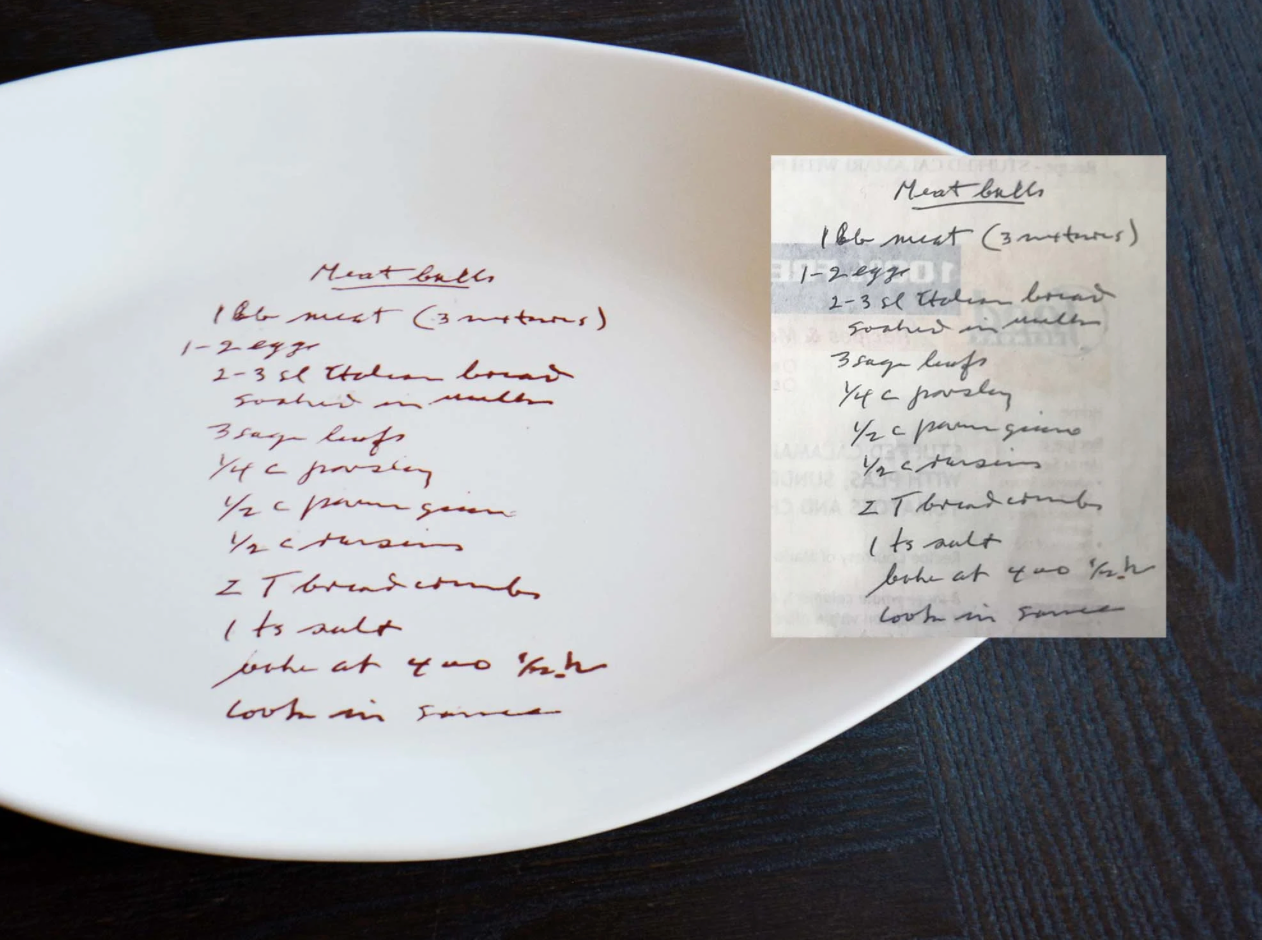 Meat balls
1 lb meat (3 mixtures)
1-2 eggs
2-3 sl Italian bread
soaked in milk
3 sage leafs
1/4 c parsley
1/2 c parmigiano
1/2 c raisins
2 T breadcrumbs
1 ts salt
bake at 400 1/2 h
cook in sauce
Meat balls
1 lb meat (3 mixtures)
1-2 eggs
2-3 sl Italian bread
soaked in milk
3 sage leafs
1/4 c parsley
1/2 c parmigiano
1/2 c raisins
2 T breadcrumbs
1 ts salt
bake at 400 1/2 h
cook in sauce